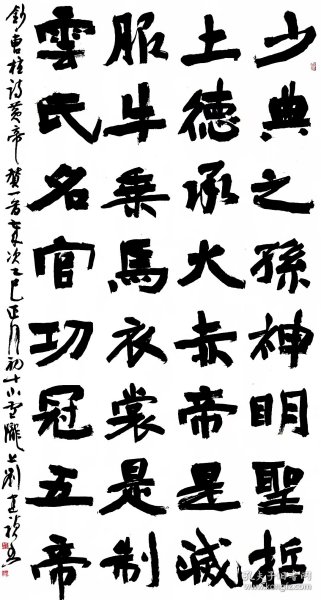 少典之孫神明聖哲
土德承火赤帝是滅
服牛乘馬衣裳是制
雲氏名官功冠五帝
錄曹植詩黃帝贊一首歲次乙巳正月初十